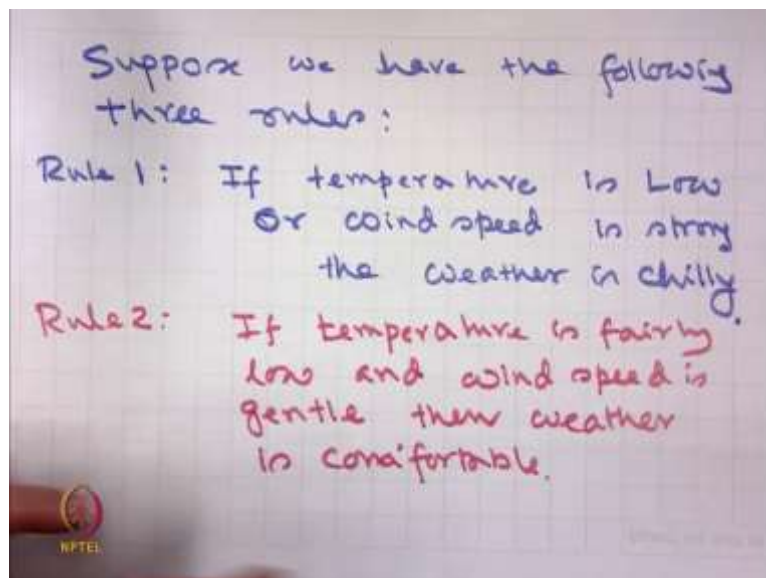 Suppose we have the following
three rules:
Rule 1: If temperature is Low
Or wind speed is strong
the weather is chilly.
Rule 2: If temperature is fairly
low and wind speed is
gentle then weather
is comfortable.
NPTEL